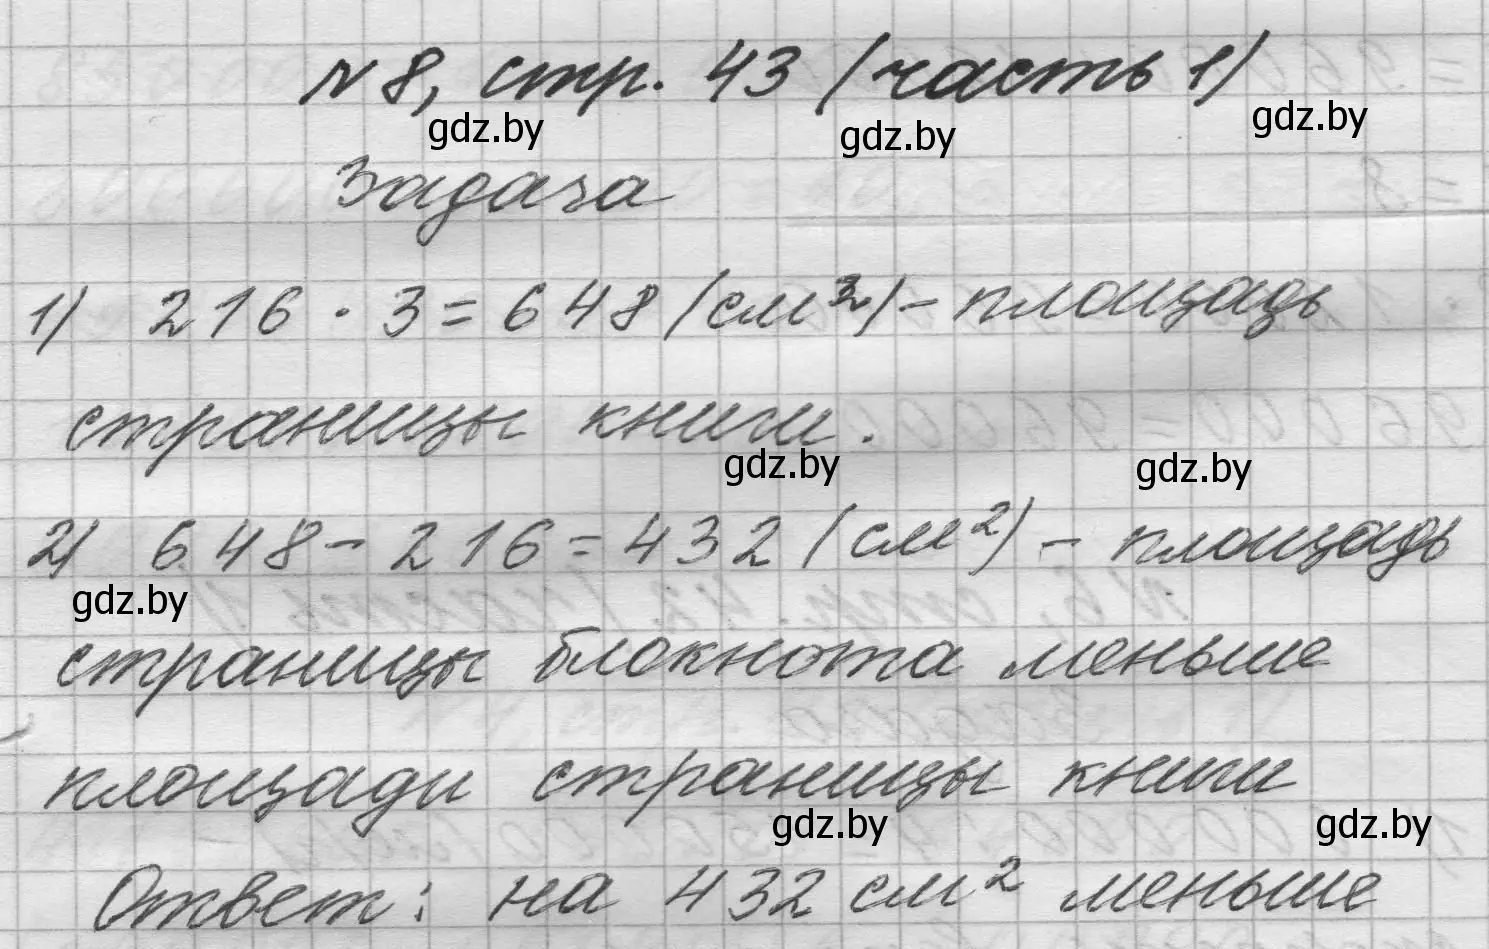 № 8, стр. 43 (часть 1)
gdz.by gdz.by gdz.by
Задача
1) 216 · 3 = 648 (см²) – площадь
страницы книги.
gdz.by gdz.by
2) 648 – 216 = 432 (см²) – площадь
gdz.by
страницы блокнота меньше
площади страницы книги
gdz.by gdz.by
Ответ: на 432 см² меньше